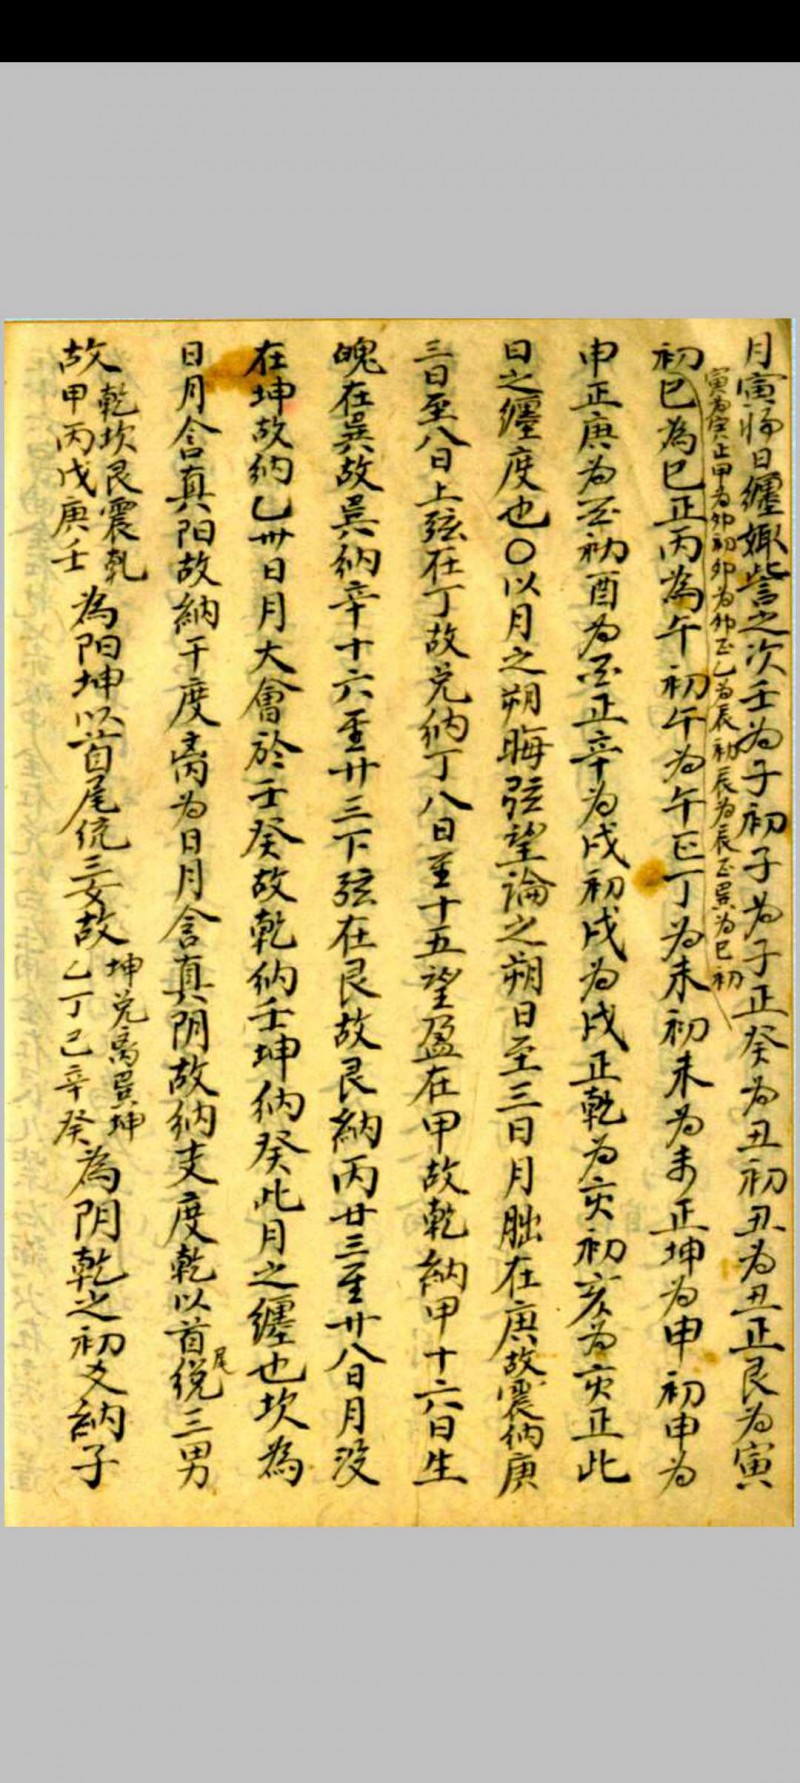 月寅將日纏娵訾之次壬为子初子为子正癸为丑初丑为丑正艮为寅
寅为寅正甲为卯初卯为卯正乙为辰初辰为辰正巽为巳初
初巳為巳正丙為午初午为午正丁为未初未为未正坤为申初申为
申正庚为酉初酉为酉正辛为戌初戌为戌正乾为亥初亥为亥正此
日之纏度也〇以月之朔晦弦望論之朔日至三日月朏在庚故震納庚
三日至八日上弦在丁故兑納丁八日至十五望盈在甲故乾納甲十六日生
魄在巽故巽納辛十六至廿三下弦在艮故艮納丙廿三至廿八日月没
在坤故納乙卅日月大會於壬癸故乾納壬坤納癸此月之纏也坎為
日月含真阳故納干度离为日月含真阴故納支度乾以首尾統三男
故乾坎艮震乾
甲丙戊庚壬
為阳坤以首尾統三女故
坤兑离巽坤
乙丁己辛癸
為阴乾之初爻納子